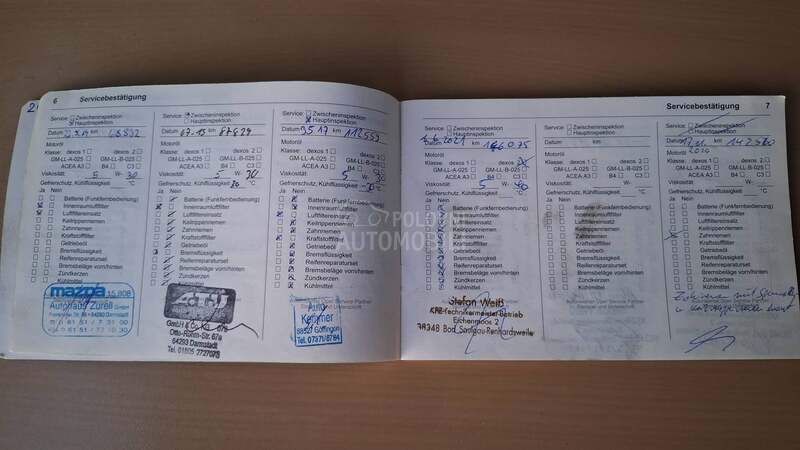 6 Servicebestätigung
Service: Zwischeninspektion
Hauptinspektion
Datum km
Motoröl
Klasse: dexos 1 dexos 2
GM-LL-A-025 GM-LL-B-025
ACEA A3 B4 C3
Viskosität: 5 W- 30
Gefrierschutz, Kühlflüssigkeit: °C
Ja Nein
Batterie (Funkfernbedienung)
Innenraumluftfilter
Luftfiltereinsatz
Keilrippenriemen
Zahnriemen
Kraftstofffilter
Getriebeöl
Bremsflüssigkeit
Reifenreparaturset
Bremsbeläge vorn/hinten
Zündkerzen
Kühlmittel
mazda 15 808
Autohaus Zürell GmbH
Service: Zwischeninspektion
Hauptinspektion
Datum 07.15 km 87829
Motoröl
Klasse: dexos 1 dexos 2
GM-LL-A-025 GM-LL-B-025
ACEA A3 B4 C3
Viskosität: 5 W- 30
Gefrierschutz, Kühlflüssigkeit: °C
Ja Nein
Batterie (Funkfernbedienung)
Innenraumluftfilter
Luftfiltereinsatz
Keilrippenriemen
Zahnriemen
Kraftstofffilter
Getriebeöl
Bremsflüssigkeit
Reifenreparaturset
Bremsbeläge vorn/hinten
Zündkerzen
Kühlmittel
A.T.U
GmbH & Co. KG
Otto-Röhm-Str. 67a
64293 Darmstadt
Tel. 01805 7727075
Service: Zwischeninspektion
Hauptinspektion
Datum km 112559
Motoröl
Klasse: dexos 1 dexos 2
GM-LL-A-025 GM-LL-B-025
ACEA A3 B4 C3
Viskosität: 5 W- 30
Gefrierschutz, Kühlflüssigkeit: °C
Ja Nein
Batterie (Funkfernbedienung)
Innenraumluftfilter
Luftfiltereinsatz
Keilrippenriemen
Zahnriemen
Kraftstofffilter
Getriebeöl
Bremsflüssigkeit
Reifenreparaturset
Bremsbeläge vorn/hinten
Zündkerzen
Kühlmittel
Auto
Tel. 07371/8784
Servicebestätigung 7
Service: Zwischeninspektion
Hauptinspektion
Datum km
Motoröl
Klasse: dexos 1 dexos 2
GM-LL-A-025 GM-LL-B-025
ACEA A3 B4 C3
Viskosität: 5 W-
Gefrierschutz, Kühlflüssigkeit: °C
Ja Nein
Batterie (Funkfernbedienung)
Innenraumluftfilter
Luftfiltereinsatz
Keilrippenriemen
Zahnriemen
Kraftstofffilter
Getriebeöl
Bremsflüssigkeit
Reifenreparaturset
Bremsbeläge vorn/hinten
Zündkerzen
Kühlmittel
Stefan Weiß
KFZ-Technikermeister-Betrieb
Eichenploos 2
78348 Bad Saulgau-Renhardsweile
Service: Zwischeninspektion
Hauptinspektion
Datum km
Motoröl
Klasse: dexos 1 dexos 2
GM-LL-A-025 GM-LL-B-025
ACEA A3 B4 C3
Viskosität: W-
Gefrierschutz, Kühlflüssigkeit: °C
Ja Nein
Batterie (Funkfernbedienung)
Innenraumluftfilter
Luftfiltereinsatz
Keilrippenriemen
Zahnriemen
Kraftstofffilter
Getriebeöl
Bremsflüssigkeit
Reifenreparaturset
Bremsbeläge vorn/hinten
Zündkerzen
Kühlmittel
Service: Zwischeninspektion
Hauptinspektion
Datum km
Motoröl 2020
Klasse: dexos 1 dexos 2
GM-LL-A-025 GM-LL-B-025
ACEA A3 B4 C3
Viskosität: W-
Gefrierschutz, Kühlflüssigkeit: °C
Ja Nein
Batterie (Funkfernbedienung)
Innenraumluftfilter
Luftfiltereinsatz
Keilrippenriemen
Zahnriemen
Kraftstofffilter
Getriebeöl
Bremsflüssigkeit
Reifenreparaturset
Bremsbeläge vorn/hinten
Zündkerzen
Kühlmittel